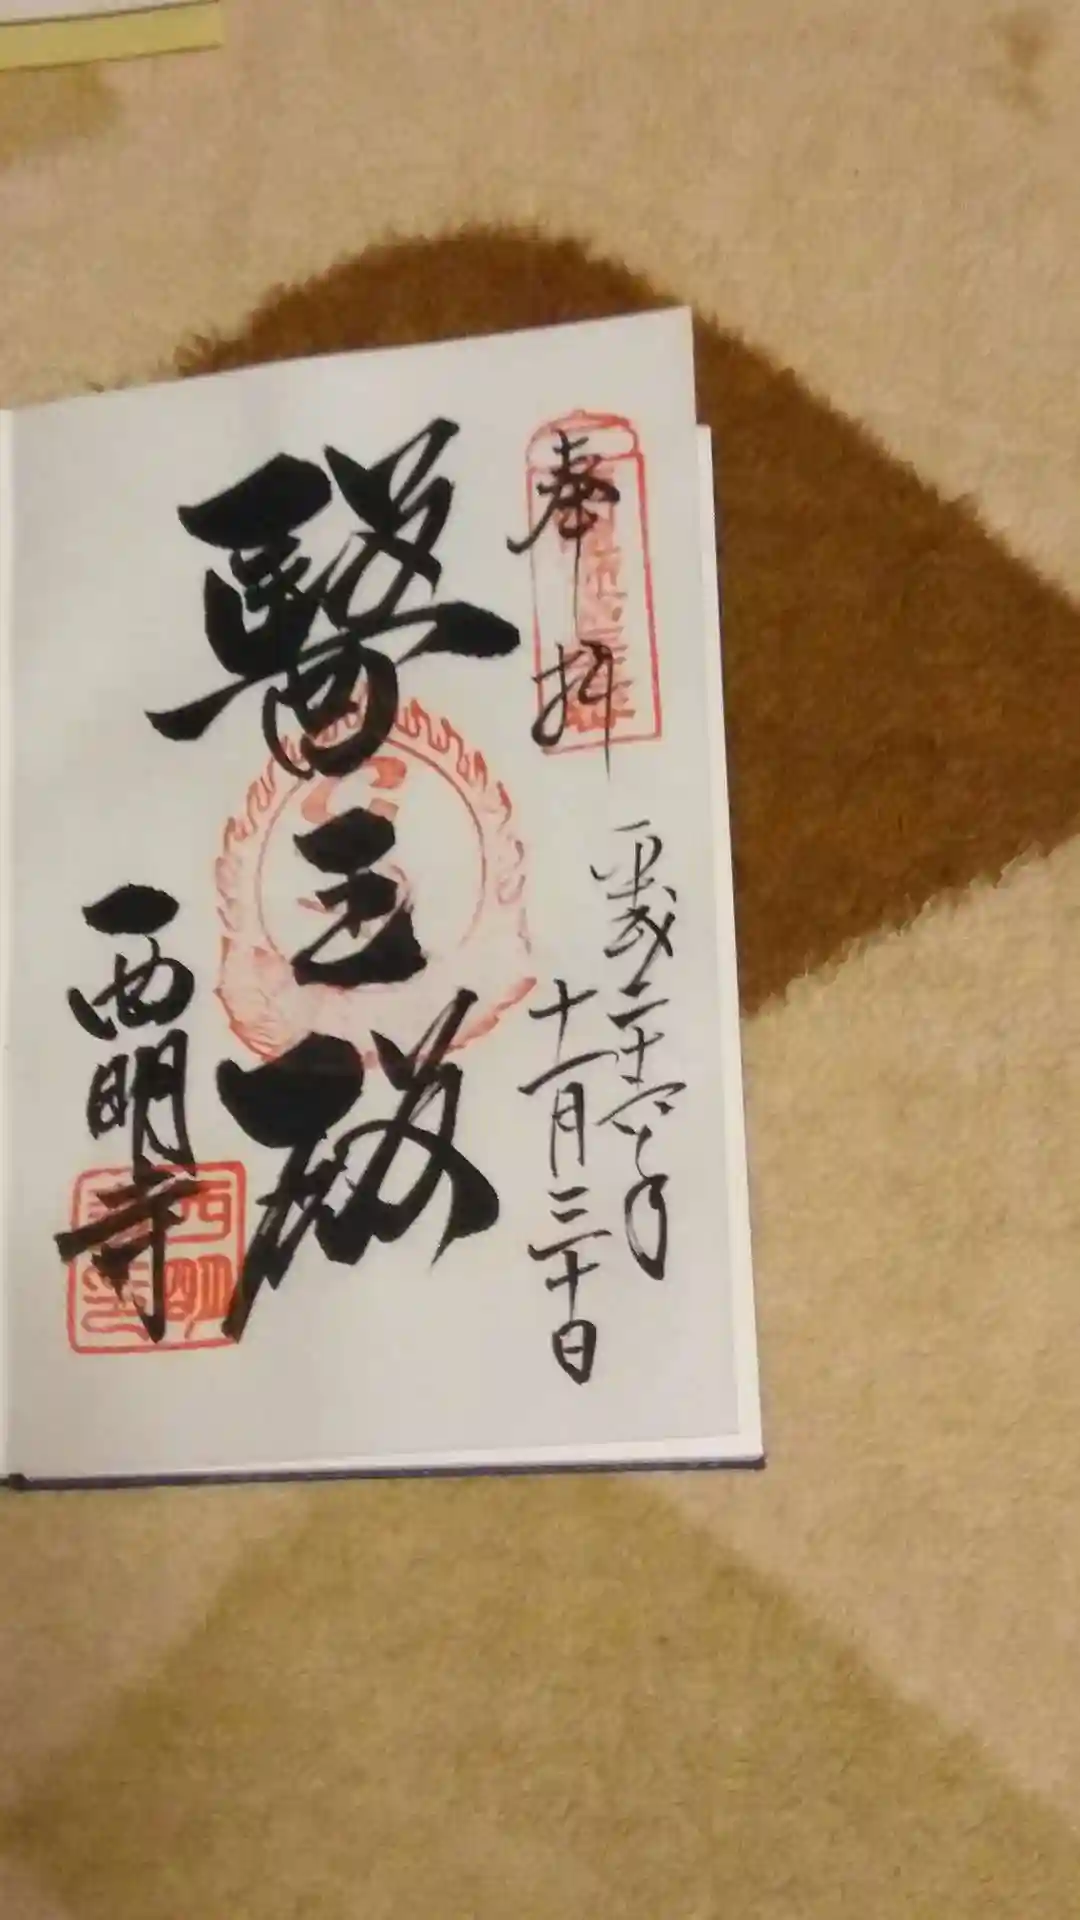 奉拝
平成二十六年
十一月三十日
醫王殿
西明寺
西明